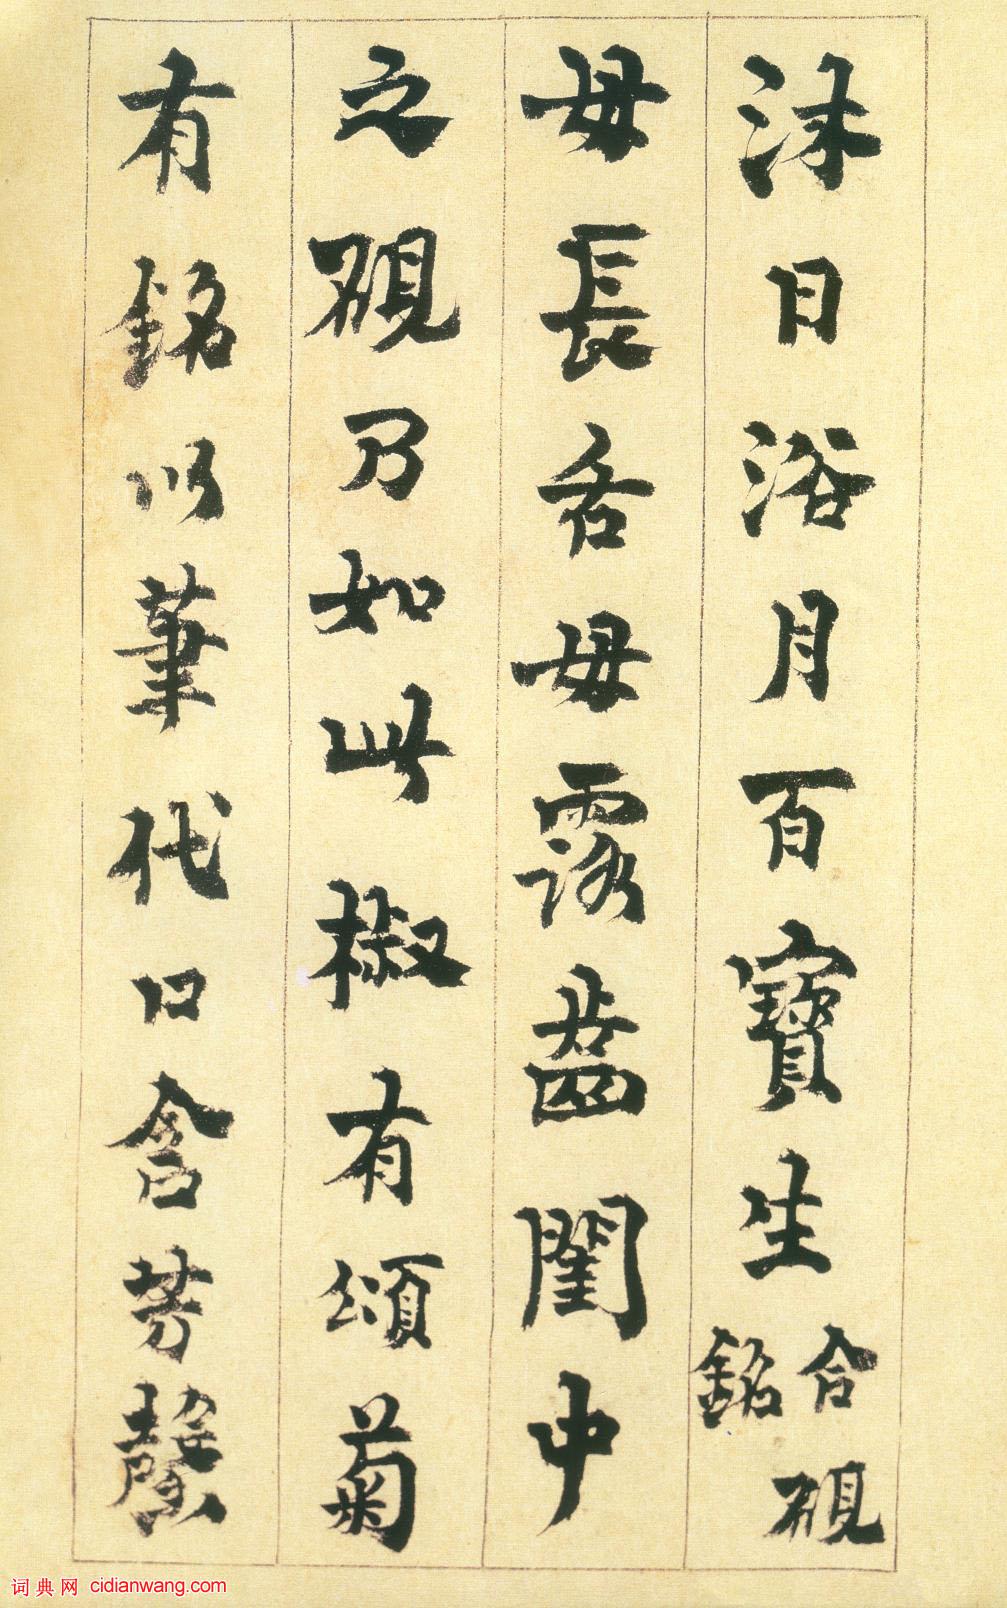 沐日浴月百寶生
合硯
銘
毋長舌毋露齒閨中
之硯乃如此椒有頌菊
有銘以筆代口含芳馨
词典网 cidianwang.com